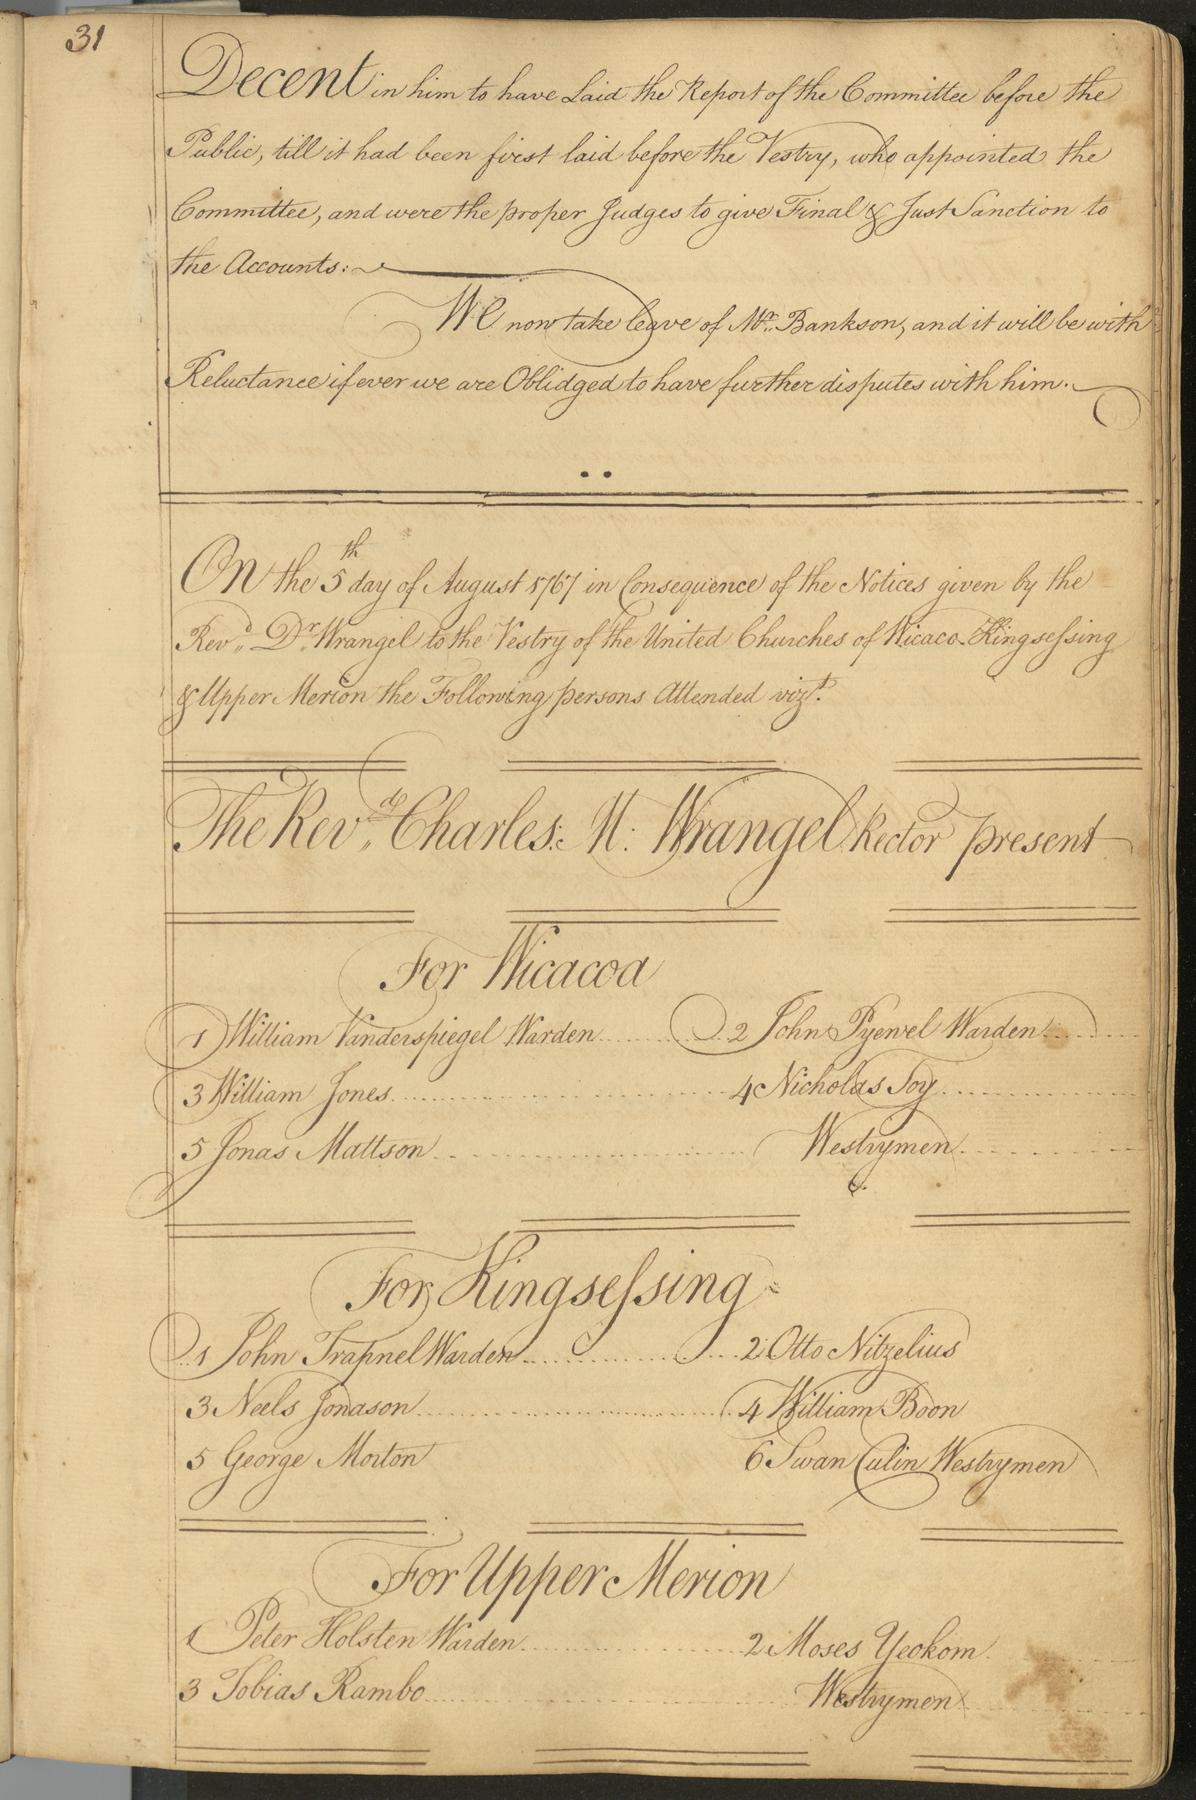 31
Decent in him to have Laid the Report of the Committee before the
Public, till it had been first laid before the Vestry, who appointed the
Committee, and were the proper Judges to give Final & Just Sanction to
the Accounts:
We now take leave of Mr. Bankson, and it will be with
Reluctance if ever we are Oblidged to have further disputes with him.
On the 5th day of August 1767 in Consequence of the Notices given by the
Revd. Dr. Wrangel to the Vestry of the United Churches of Wicaco Kingsessing
& Upper Merion the Following persons Attended vizt.
The Revd. Charles: M: Wrangel Rector present
For Wicacoa
1 William Vanderspiegel Warden 2 John Pyewel Warden
3 William Jones 4 Nicholas Toy
5 Jonas Mattson Westrymen
For Kingsessing
1 John Trapnel Warden 2 Otto Nitzelius
3 Neels Jonason 4 William Boon
5 George Morton 6 Swan Culin Westrymen
For Upper Merion
1 Peter Holsten Warden 2 Moses Yeokom
3 Tobias Rambo Westrymen